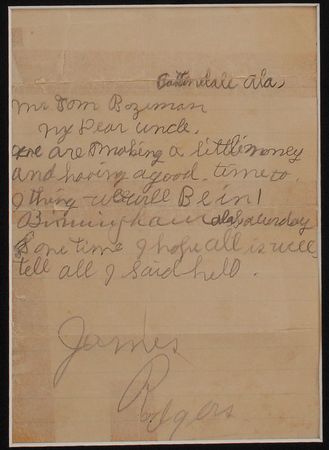 Ala,
Mr Tom Bozeman
My Dear uncle,
we are making a little money
and having a good time to.
I thing we will Be in
Birmingham ala, saturday
some time I hope all is well
tell all I said hell.
James
Rodgers